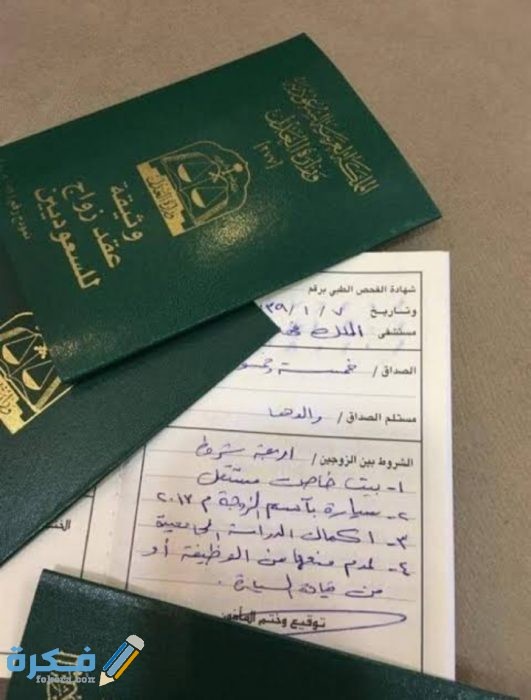 المملكة العربية السعودية
وزارة العدل
(٢٧٧)
وزارة العدل
وثيقة
عقد زواج
للسعوديين
شهادة الفحص الطبي برقم
وتاريخ ٧ / ١ / ٣٩
مستشفى الملك
الصداق / خمسة
مستلم الصداق / والدها
الشروط بين الزوجين / اربعة شروط
١- بيت خاص مستقل
٢- سيارة بأسم الزوجة م ٢٠١٣
٣- اكمال الدراسة الجامعية
٤- عدم منعها من الوظيفة أو
من قيادة السيارة .
توقيع وختم المأذون
فكرة
fekera.com